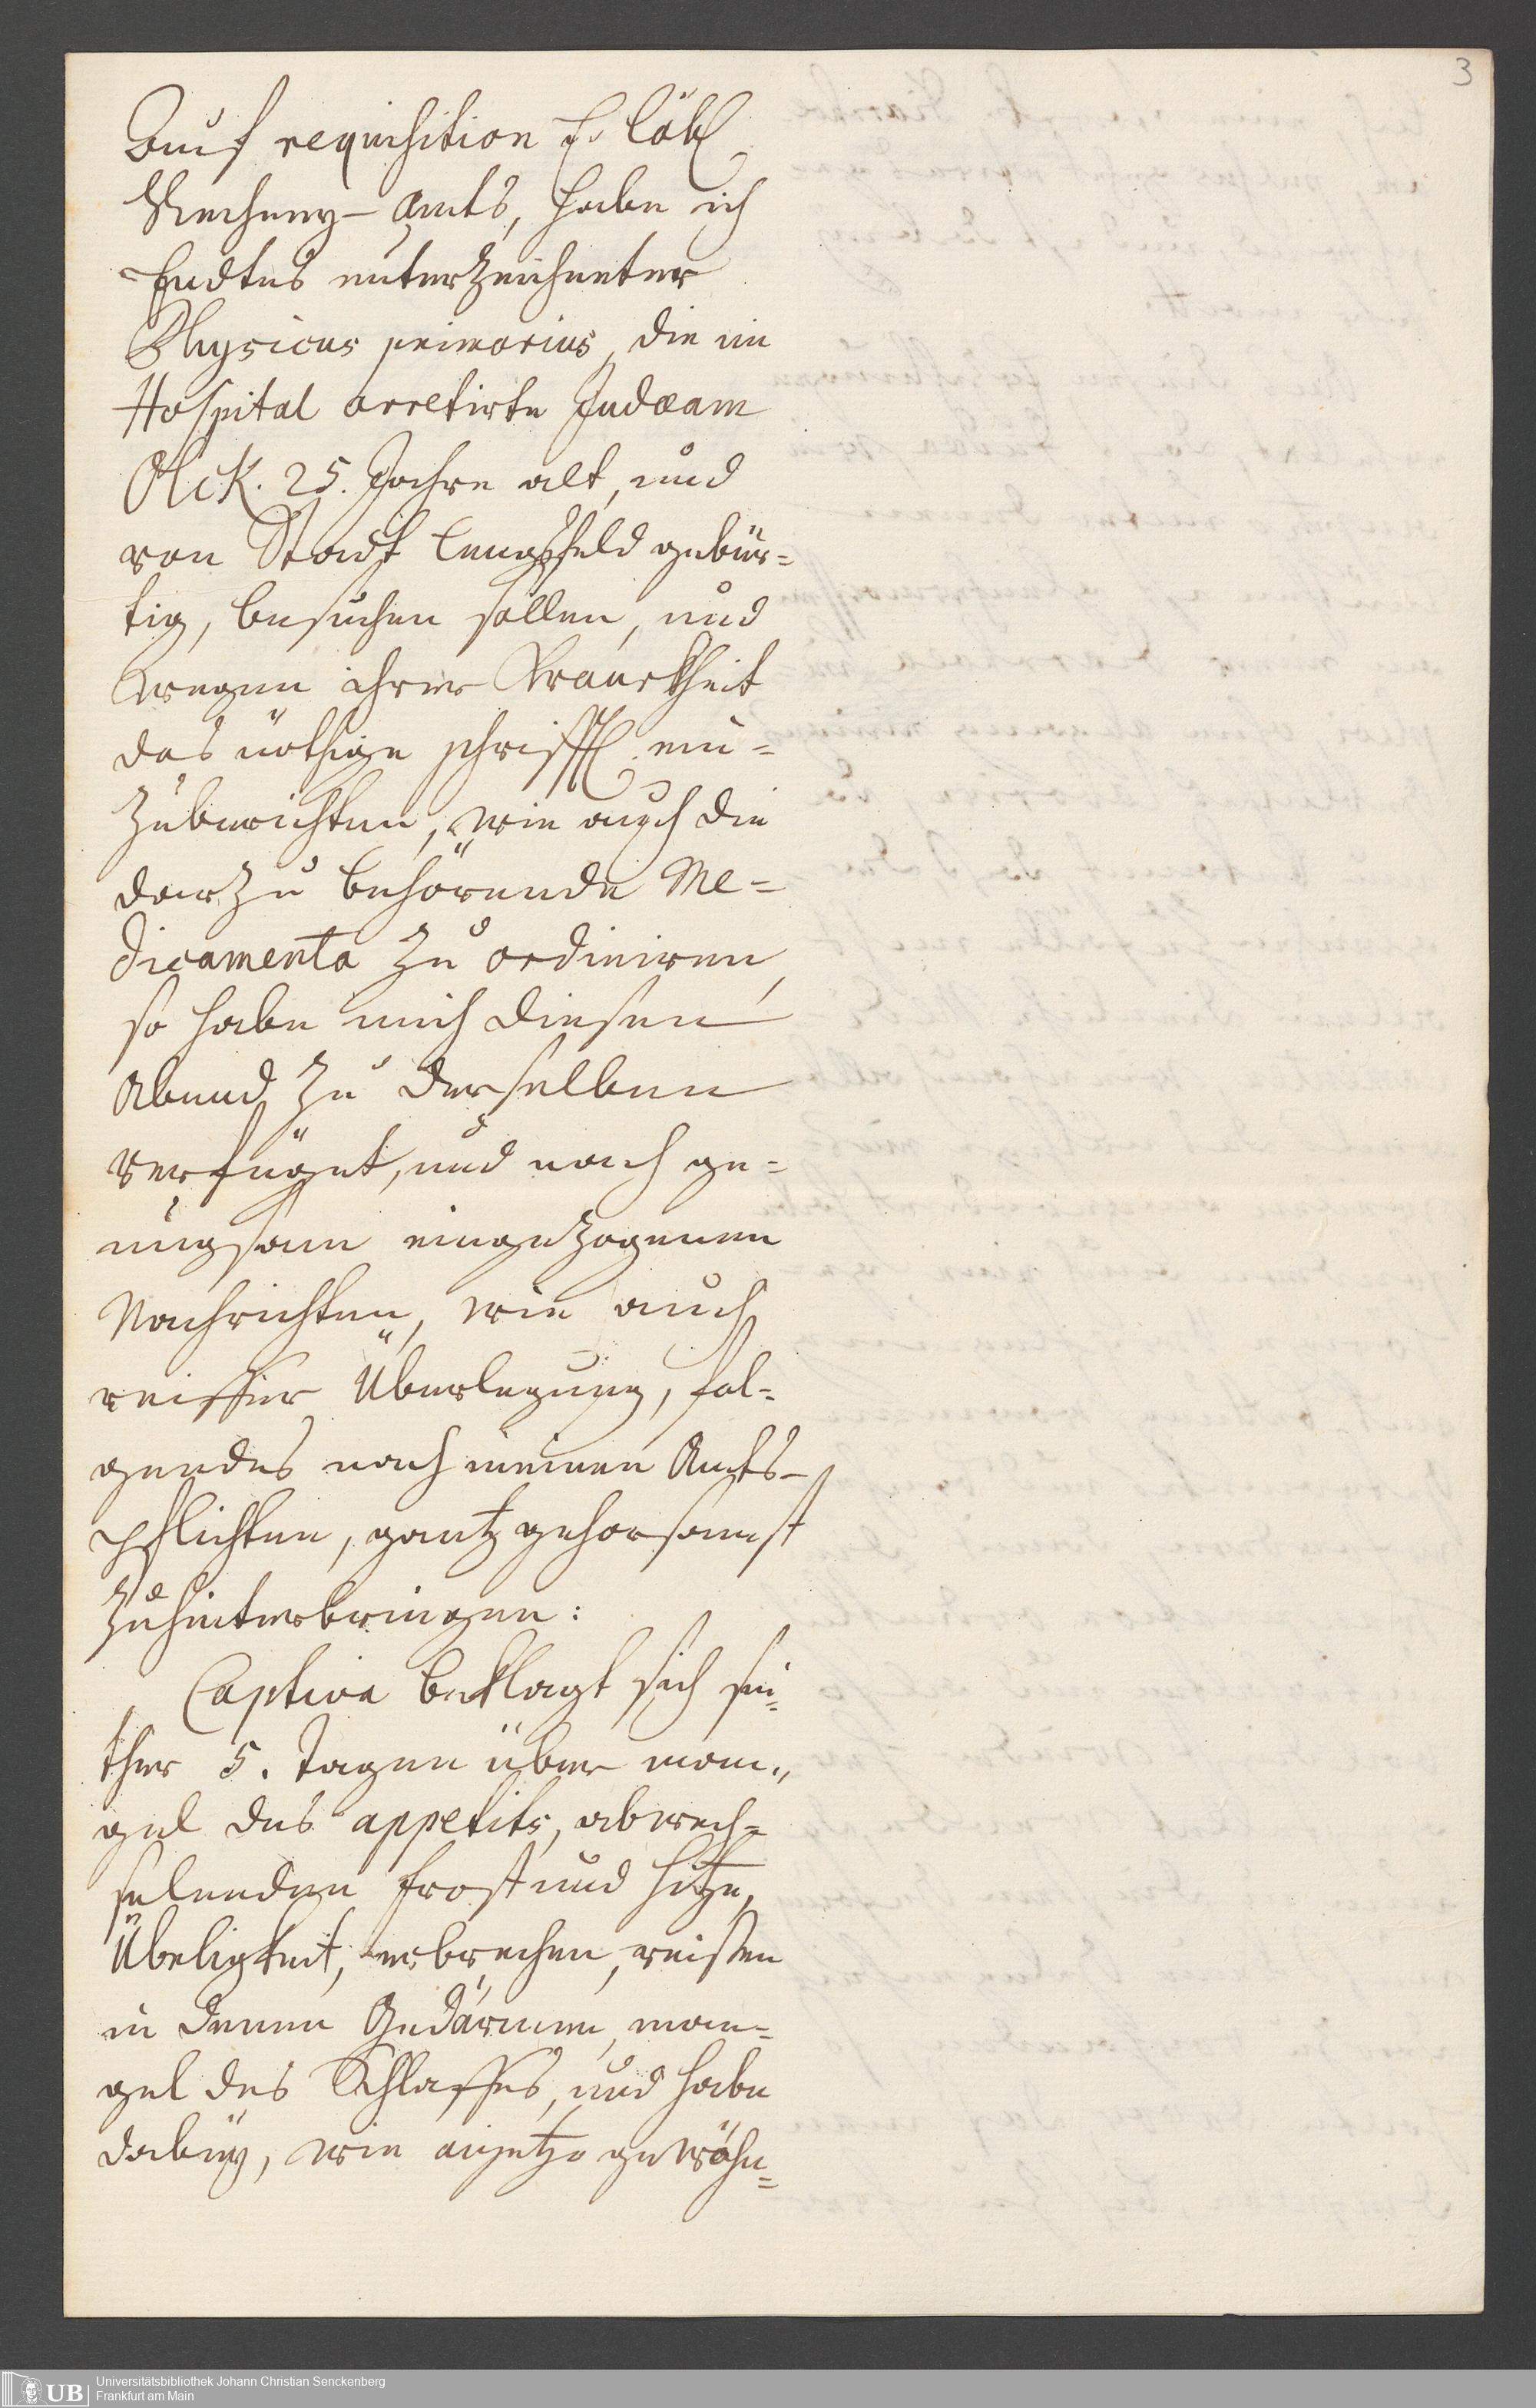 3
Auf requisition E. löbl.
Rechney-Amts, habe ich
Endtes unterzeichneter
Physicus primarius, die im
Hospital arretirte Judaeam
Olck. 25. Jahre alt, und
von Stadt Lengsfeld gebür=
tig, besuchen sollen, und
wegen ihrer Kranckheit
das nöthige schrifftl. ein=
zuberichten, wie auch die
darzu behörende Me=
dicamenta zu ordiniren,
so habe mich diesen
Abend zu derselben
verfüget, und nach ge=
nugsam eingezogenen
Nachrichten, wie auch
reiffer Überlegung, fol=
gendes nach meinen Amts-
pflichten, gantz gehorsamst
zuhinterbringen:
Captiva beklagt sich sei=
ther 5. Tagen über man=
gel des appetits, abwech=
selenden Frost und Hitze,
Übeligkeit, erbrechen, reissen
in denen Gedärmen, man=
gel des Schlaffes, und habe
dabey, wie anjetzo gewöhn=
UB
Universitätsbibliothek Johann Christian Senckenberg
Frankfurt am Main